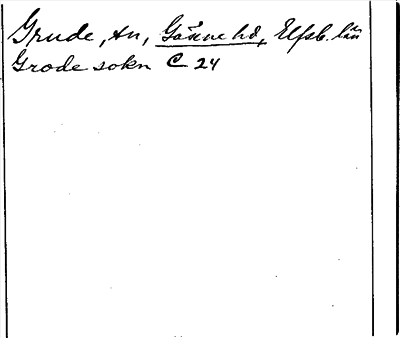 Grude, sn, Gäsene hd, Elfsb. län
Grode sokn C 24